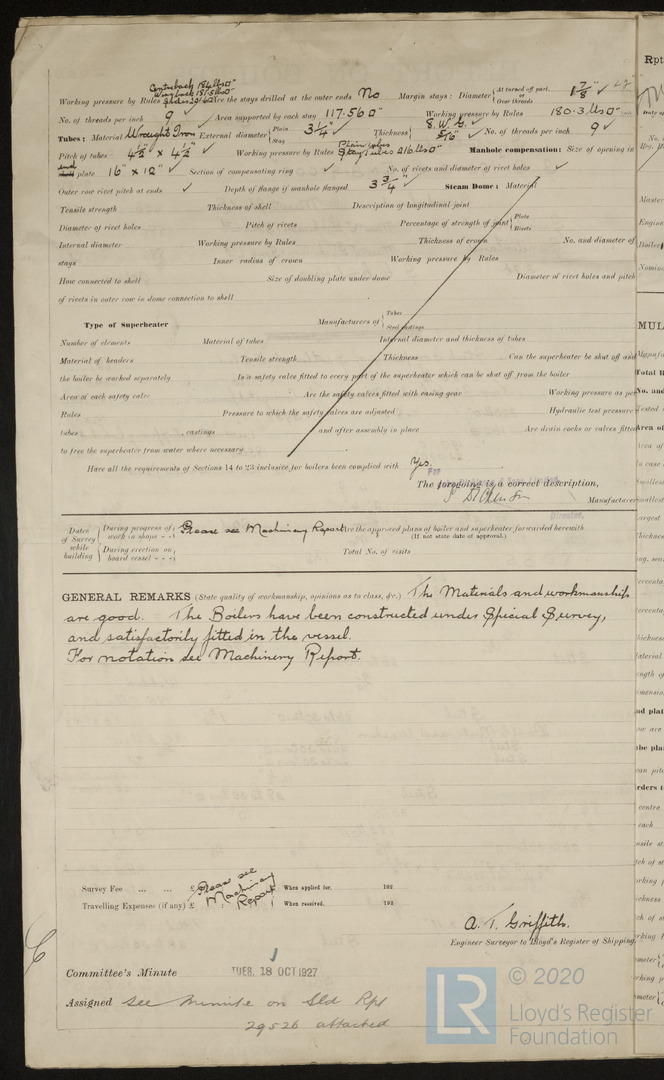 Centreback 184 lbs□"
Wingback 181.5 lbs□"
Working pressure by Rules Sides 201.6□" Are the stays drilled at the outer ends No Margin stays: Diameter { At turned off part, or Over threads 1 7/8" ✓
No. of threads per inch 9 ✓ Area supported by each stay 117.56□" Working pressure by Rules 180.3 lbs□"
Tubes: Material Wrought Iron External diameter { Plain Stay 3 1/4" ✓ Thickness { 8. W. G. ✓ 5/16" No. of threads per inch 9 ✓
Pitch of tubes 4 1/2" x 4 1/2" ✓ Working pressure by Rules Plain tubes Stay tubes 216 lbs□" Manhole compensation: Size of opening in
end
shell plate 16" x 12" ✓ Section of compensating ring ✓ No. of rivets and diameter of rivet holes ✓
Outer row rivet pitch at ends ✓ Depth of flange if manhole flanged 3 3/4" ✓ Steam Dome: Material
Tensile strength Thickness of shell Description of longitudinal joint
Diameter of rivet holes Pitch of rivets Percentage of strength of joint { Plate Rivets
Internal diameter Working pressure by Rules Thickness of crown No. and diameter of
stays Inner radius of crown Working pressure by Rules
How connected to shell Size of doubling plate under dome Diameter of rivet holes and pitch
of rivets in outer row in dome connection to shell
Type of Superheater Manufacturers of { Tubes Steel castings
Number of elements Material of tubes Internal diameter and thickness of tubes
Material of headers Tensile strength Thickness Can the superheater be shut off and
the boiler be worked separately Is a safety valve fitted to every part of the superheater which can be shut off from the boiler
Area of each safety valve Are the safety valves fitted with easing gear Working pressure as per
Rules Pressure to which the safety valves are adjusted Hydraulic test pressure
tubes , castings and after assembly in place Are drain cocks or valves fitted
to free the superheater from water where necessary
Have all the requirements of Sections 14 to 23 inclusive for boilers been complied with Yes.
For
The foregoing is a correct description,
Manufacturer
Director.
Dates of Survey while building { During progress of work in shops - - { During erection on board vessel - - - } Please see Machinery Report Are the approved plans of boiler and superheater forwarded herewith
(If not state date of approval.)
Total No. of visits
GENERAL REMARKS (State quality of workmanship, opinions as to class, &c.) The Materials and workmanship
are good. The Boilers have been constructed under Special Survey,
and satisfactorily fitted in the vessel.
For notation see Machinery Report.
Survey Fee ... ... £ Please see When applied for, 192
Travelling Expenses (if any) £ Machinery Report When received, 192
A. T. Griffith.
Engineer Surveyor to Lloyd's Register of Shipping.
Committee's Minute TUES. 18 OCT 1927
Assigned See minute on Sld Rpt
29526 attached
LR © 2020
Lloyd's Register
Foundation
Rpt
MUL